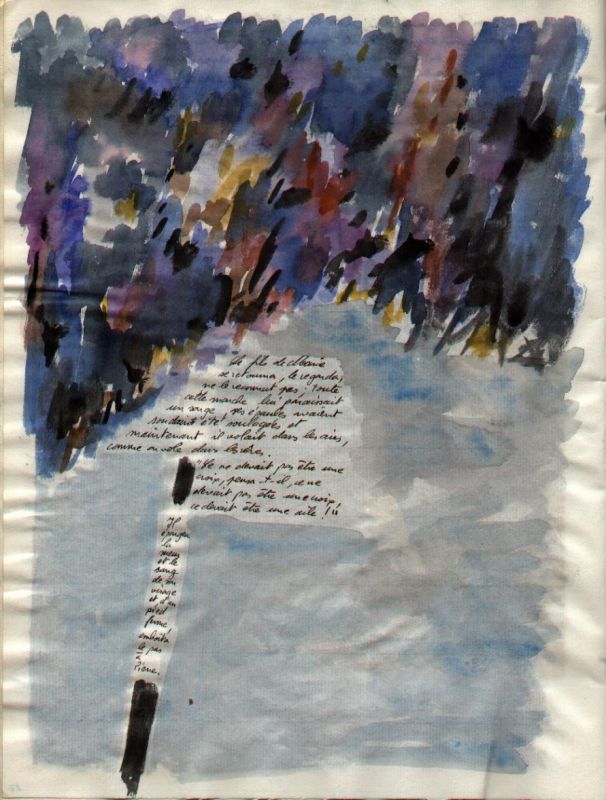 Le fils de Marie
se retourna, le regarda,
ne le reconnut pas : toute
cette marche lui paraissait
un songe. Ses épaules avaient
soudain été soulagées et
maintenant il volait dans les airs,
comme on vole dans les rêves.
"Ce ne devait pas être une
croix, pensa-t-il, ce ne
devait pas être une croix,
ce devait être une aile !"
Il
épongea
la
sueur
et le
sang
de son
visage
et d'un
pied
ferme,
emboîta
le pas
à
Pierre.